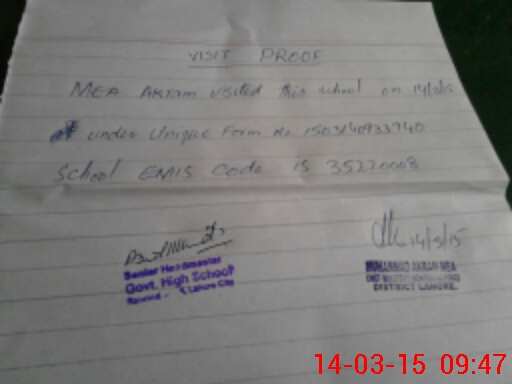 VISIT PROOF
MEA AKRAM visited this school on 14/3/15
under Unique Form No 1503140933940
School EMIS Code is 35220008
14/3/15
Senior Headmaster
Govt. High School
Lahore City
MUHAMMAD AKRAM MEA
DISTRICT LAHORE.
14-03-15 09:47